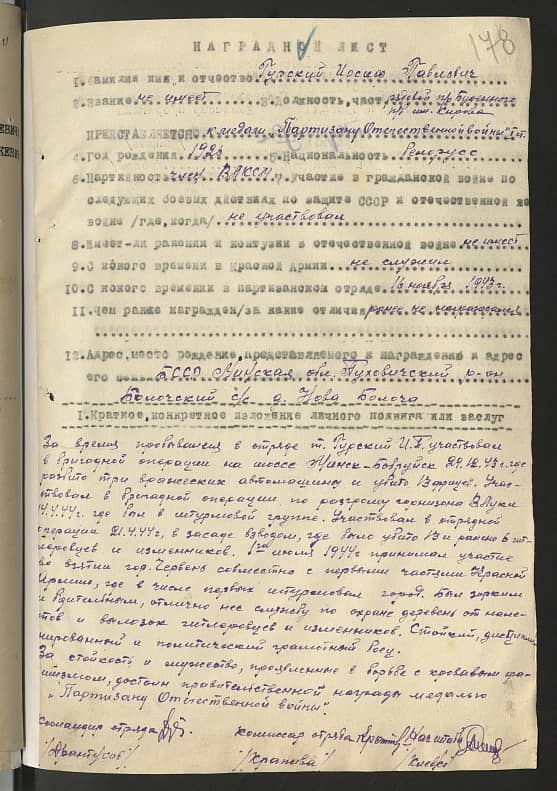 178
НАГРАДНОЙ ЛИСТ
1. Фамилия имя и отчество Гурский Иосиф Павлович
2. Звание не имеет 3. Должность, часть рядовой п/о Буденного п/бр им. Кирова
ПРЕДСТАВЛЯЕТСЯ к медали "Партизану Отечественной войны" I ст.
4. Год рождения 192 5. Национальность белорус
6. Партийность член ВЛКСМ 7. участие в гражданской войне по
следующих боевых действиях по защите СССР и отечественной
войне /где, когда/ не участвовал
8. Имеет-ли ранения и контузии в отечественной войне не имеет
9. С какого времени в Красной Армии не служил
10. С какого времени в партизанском отряде 16 ноября 1943 г.
11. Чем ранее награжден /за какие отличия ранее не награжден
12. Адрес, место рождение представляемого к награждению и адрес
его БССР Минская обл. Пуховичский р-он
Болочский с/с д. Нова Болоча
I. Краткое, конкретное изложение личного подвига или заслуг
За время пребывания в отряде т. Гурский И.П. участвовал
в бригадной операции на шоссе Минск-Бобруйск 29.12.43 г. где
разбито три вражеских автомашины и убито 12 фрицев. Учас-
твовал в бригадной операции по разгрому гарнизона В.Луки
4.4.44 г. где был в штурмовой группе. Участвовал в отрядной
операции 21.4.44 г, в засаде взводом, где было убито 13 и ранено 6 гит-
леровцев и изменников. 1го июля 1944 г принимал участие
во взятии гор. Червень совместно с первыми частями Красной
Армии, где в числе первых штурмовал город. Был зорким
и бдительным, отлично нес службу по охране деревень от нале-
тов и вылазок гитлеровцев и изменников. Стойкий, дисципли-
нированный и политический грамотный боец.
За стойкость и мужество, проявленные в борьбе с кровавым фа-
шизмом, достоин правительственной награды медалью
"Партизану Отечественной войны".
Командир отряда Комиссар отряда Начштаба